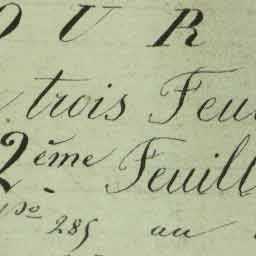 O U R
trois Feu
2ème Feuill
No 285 au